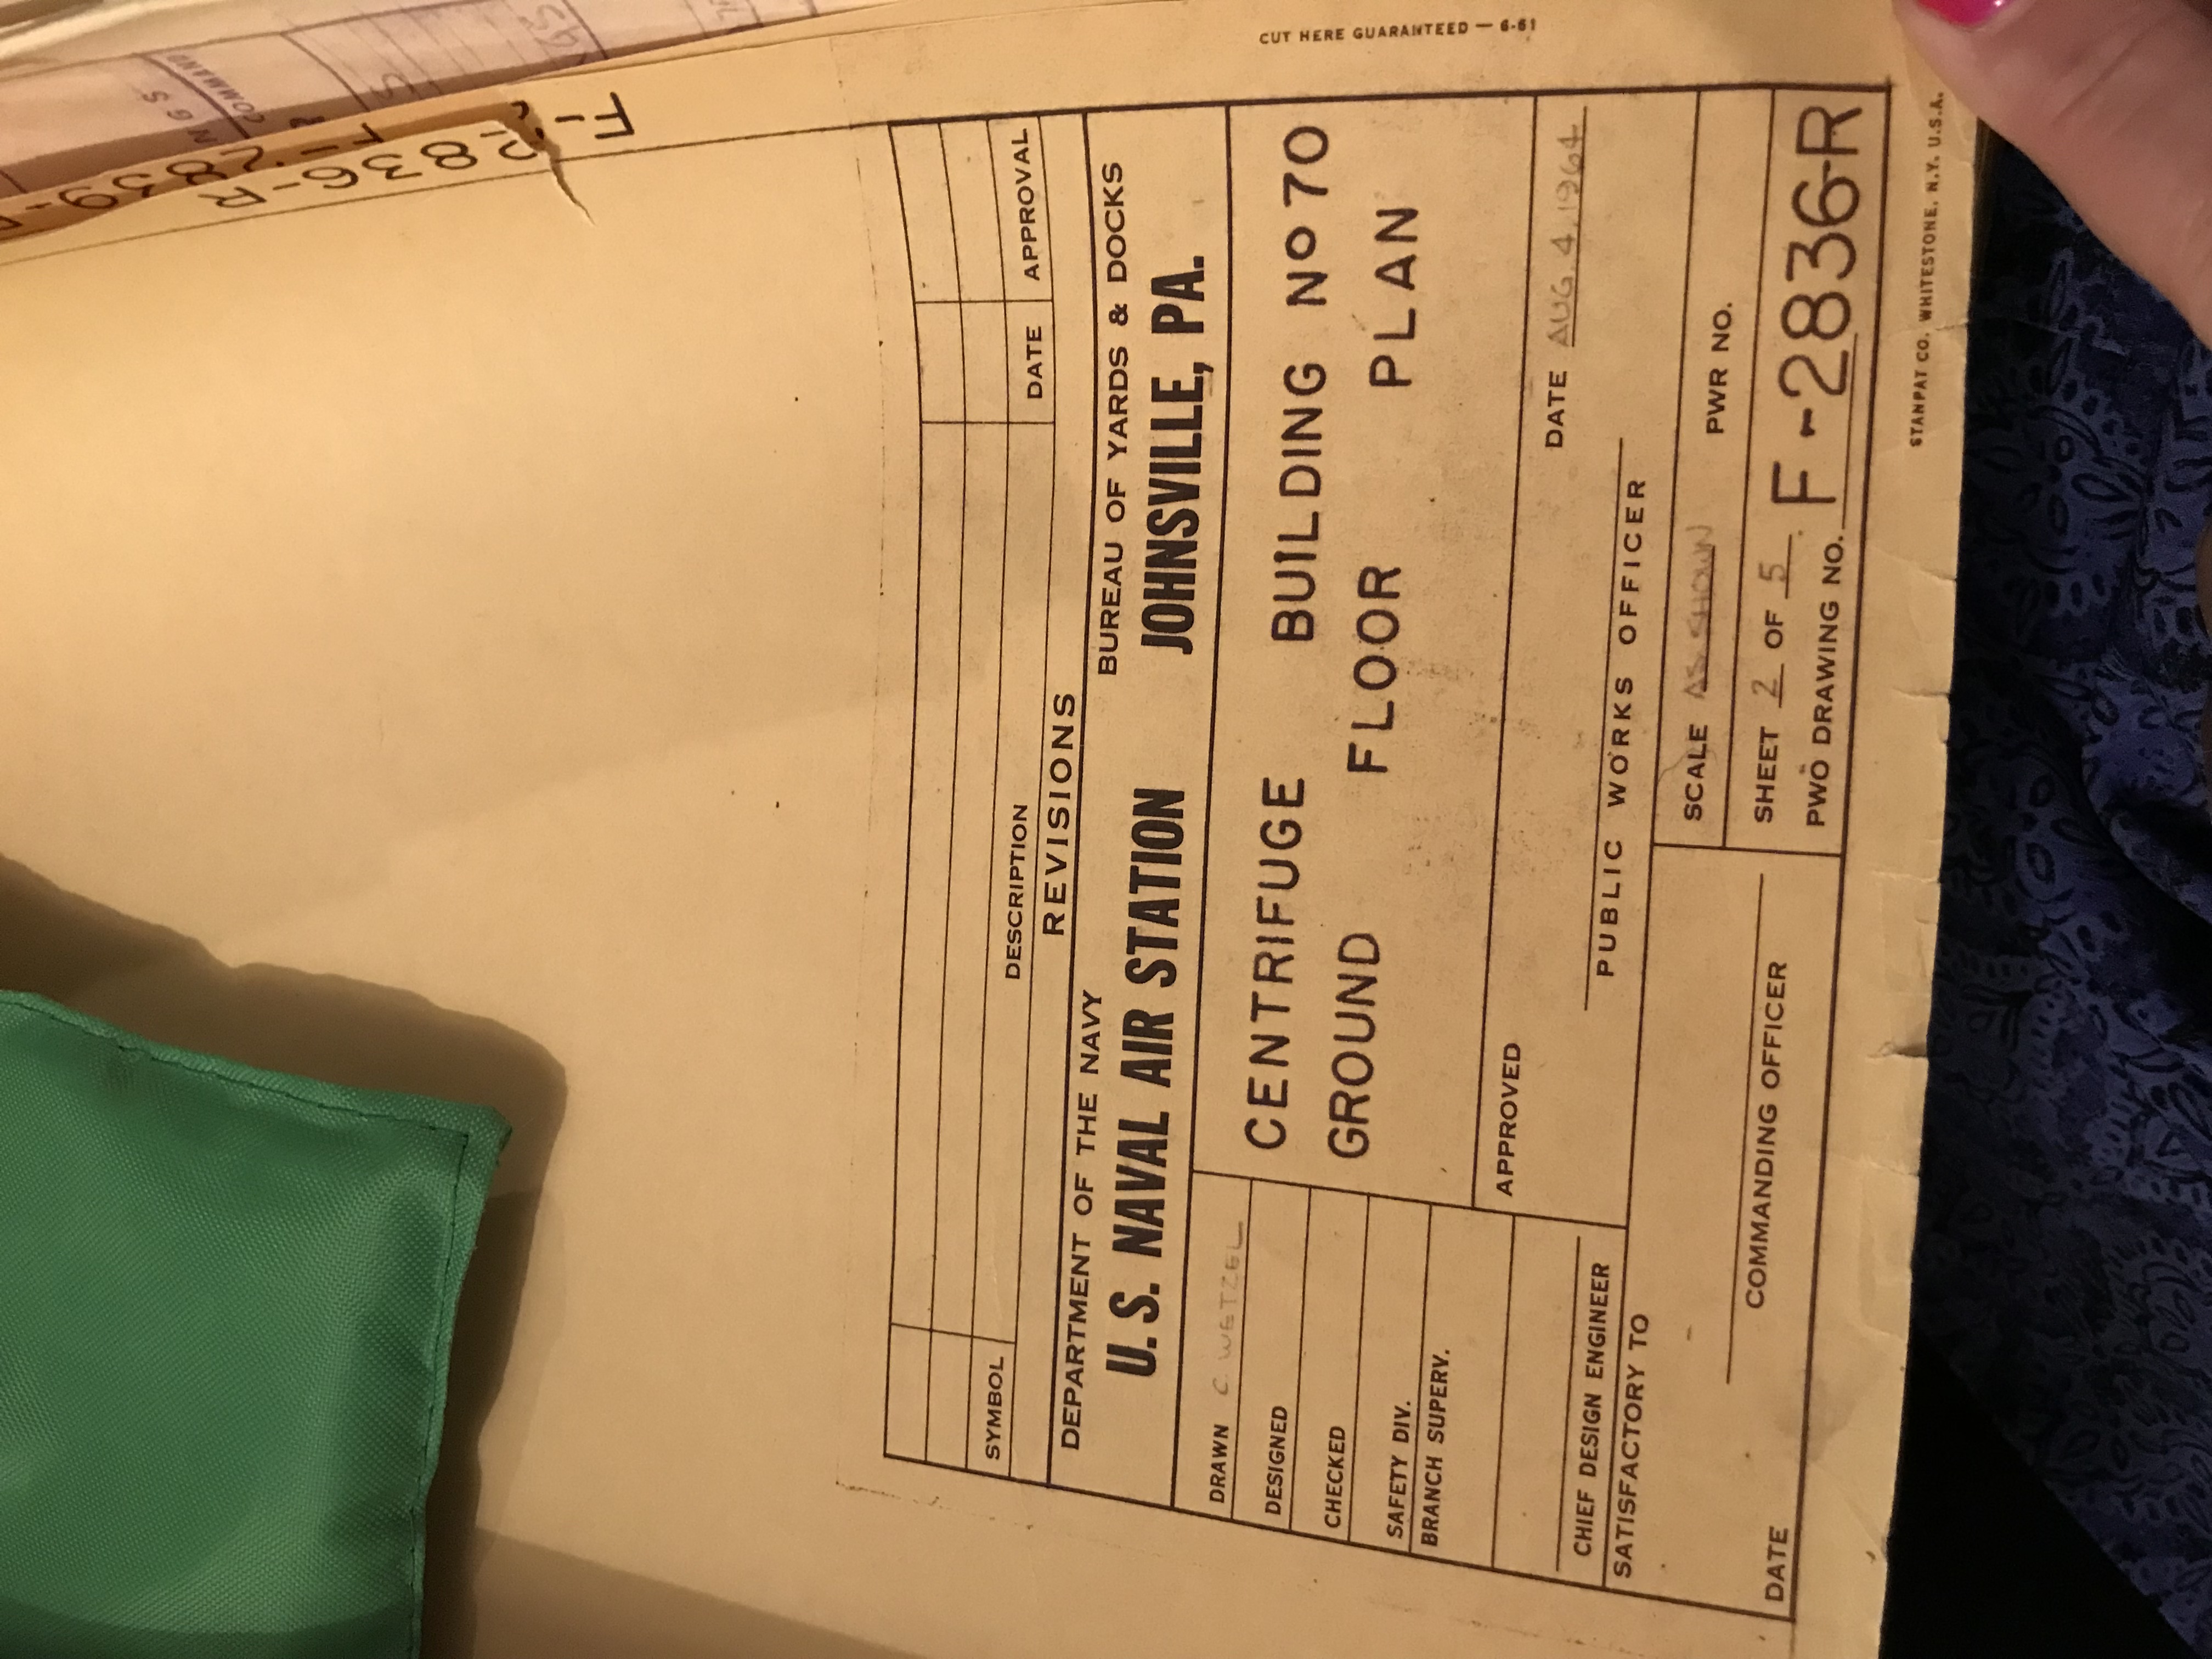 NGS
COMMAND
F-2839-
F-2836-R
SYMBOL DESCRIPTION DATE APPROVAL
REVISIONS
DEPARTMENT OF THE NAVY BUREAU OF YARDS & DOCKS
U. S. NAVAL AIR STATION JOHNSVILLE, PA.
DRAWN C. WETZEL
DESIGNED
CHECKED
SAFETY DIV.
BRANCH SUPERV.
CHIEF DESIGN ENGINEER
CENTRIFUGE BUILDING No 70
GROUND FLOOR PLAN
APPROVED
DATE AUG. 4, 1964
PUBLIC WORKS OFFICER
SATISFACTORY TO
COMMANDING OFFICER
DATE
SCALE AS SHOWN PWR NO.
SHEET 2 OF 5
PWO DRAWING NO. F-2836-R
CUT HERE GUARANTEED — 6-61
STANPAT CO. WHITESTONE, N.Y. U.S.A.